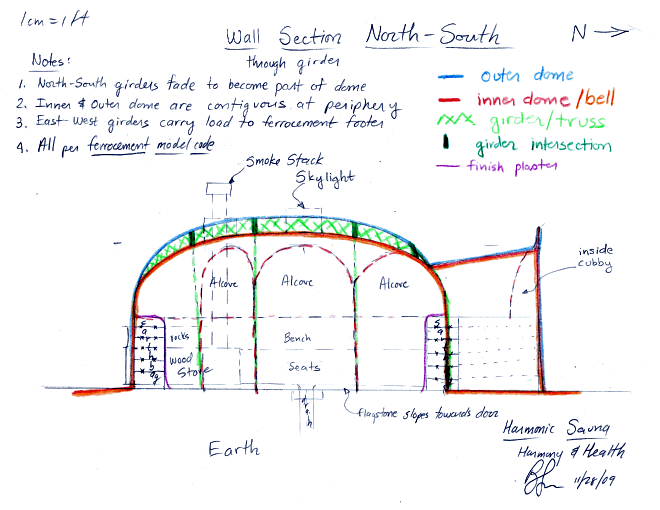 1cm = 1 ft
Wall Section North-South
through girder
N
Notes:
1. North-South girders fade to become part of dome
2. Inner & Outer dome are contiguous at periphery
3. East-West girders carry load to ferrocement footer
4. All per ferrocement model code
outer dome
inner dome/bell
girder/truss
girder intersection
finish plaster
Smoke Stack
Skylight
inside
cubby
Alcove
Alcove
Alcove
rocks
Bench
Wood
Stove
Seats
drain
flagstone slopes towards door
Earth
Harmonic Sauna
Harmony & Health
11/28/09